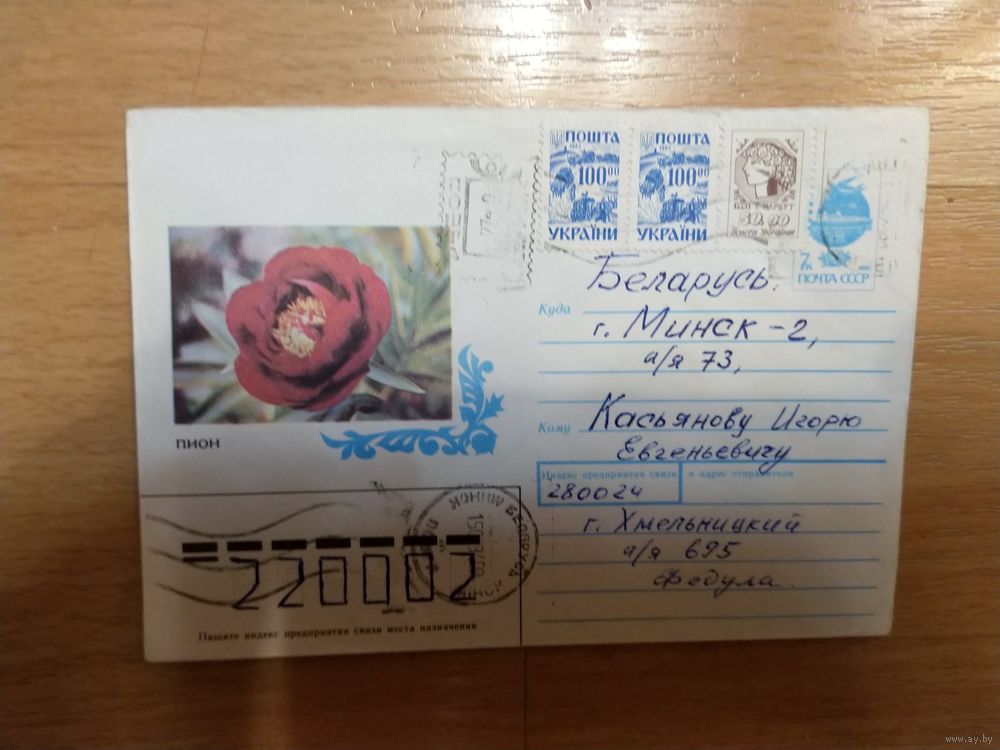 ПОШТА
100 00
УКРАЇНИ
ПОШТА
100 00
УКРАЇНИ
50.00
ПОШТА УКРАЇНИ
7к
ПОЧТА СССР
Куда
Беларусь.
г. Минск-2,
а/я 73,
Кому
Касьянову Игорю
Евгеньевичу
Индекс предприятия связи
и адрес отправителя
280024
г. Хмельницкий
а/я 695
Федула.
ПИОН
МІНСК БЕЛАРУСЬ
220002
Пишите индекс предприятия связи места назначения
www.ay.by